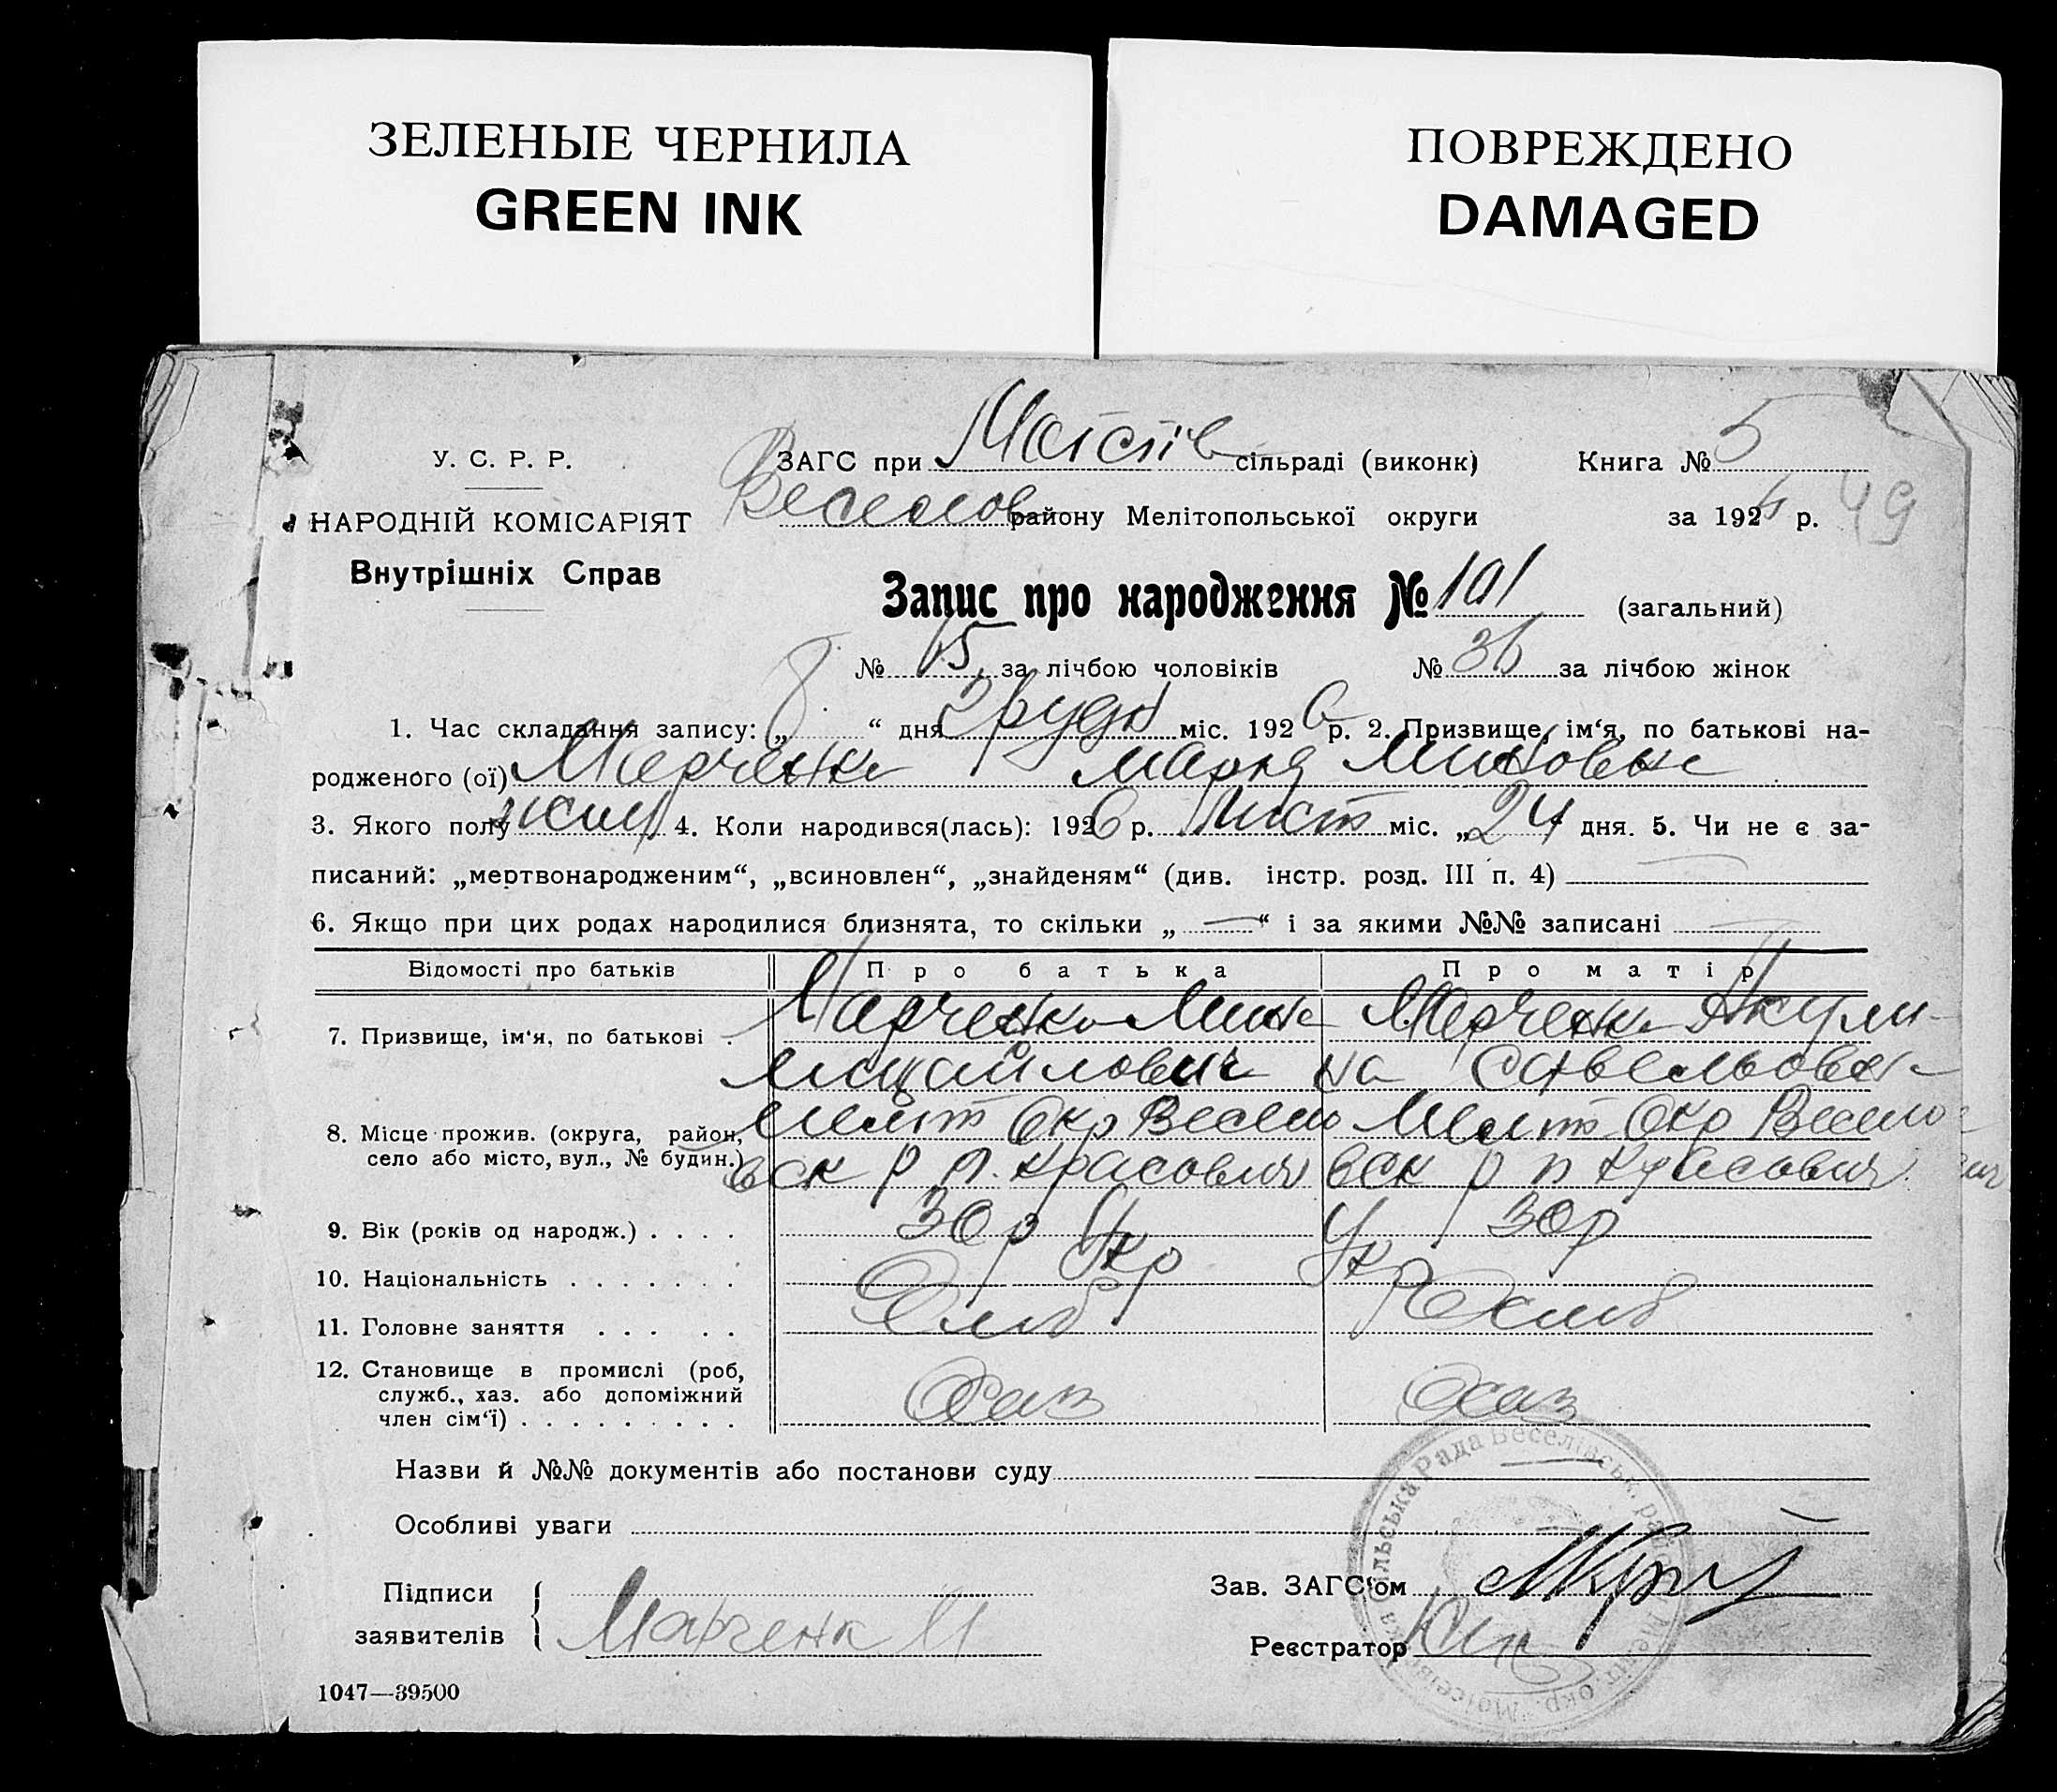 ЗЕЛЕНЫЕ ЧЕРНИЛА
GREEN INK
ПОВРЕЖДЕНО
DAMAGED
У. С. Р. Р.
НАРОДНІЙ КОМІСАРІЯТ
Внутрішніх Справ
ЗАГС при Моісеїв сільраді (виконк) Книга № 5
Веселов району Мелітопольської округи за 1926 р. 49
Запис про народження № 101 (загальний)
№ 65 за лічбою чоловіків № 36 за лічбою жінок
1. Час складання запису: „8“ дня Грудн міс. 1926 р. 2. Призвище, ім‘я, по батькові на-
родженого (ої) Марченко Мария Миновна
3. Якого полу жін 4. Коли народився(лась): 1926 р. Лист міс. „24 дня. 5. Чи не є за-
писаний: „мертвонародженим“, „всиновлен“, „знайденям“ (див. інстр. розд. III п. 4) —
6. Якщо при цих родах народилися близнята, то скільки „—“ і за якими №№ записані —
Відомості про батьків Про батька Про матір
7. Призвище, ім‘я, по батькові . Марченко Мина Марченко Акули-
Михайлович на Савельовна
8. Місце прожив. (округа, район, Меліт Окр Весело Меліт Окр Весело-
село або місто, вул., № будин.) вск р п. Красовин вск р п Красовин
9. Вік (років од народж.) . . . . 30 р 30 р
10. Національність . . . . . . . Укр Укр
11. Головне заняття . . . . .
12. Становище в промислі (роб,
служб., хаз. або допоміжний Хаз Хаз
член сім‘ї) . . . . . . . . .
Назви й №№ документів або постанови суду
Особливі уваги
Підписи Зав. ЗАГС‘ом
заявителів Марченко М Реєстратор
1047—39500
Сільська Рада Веселівськ. рай. Меліт. окр.